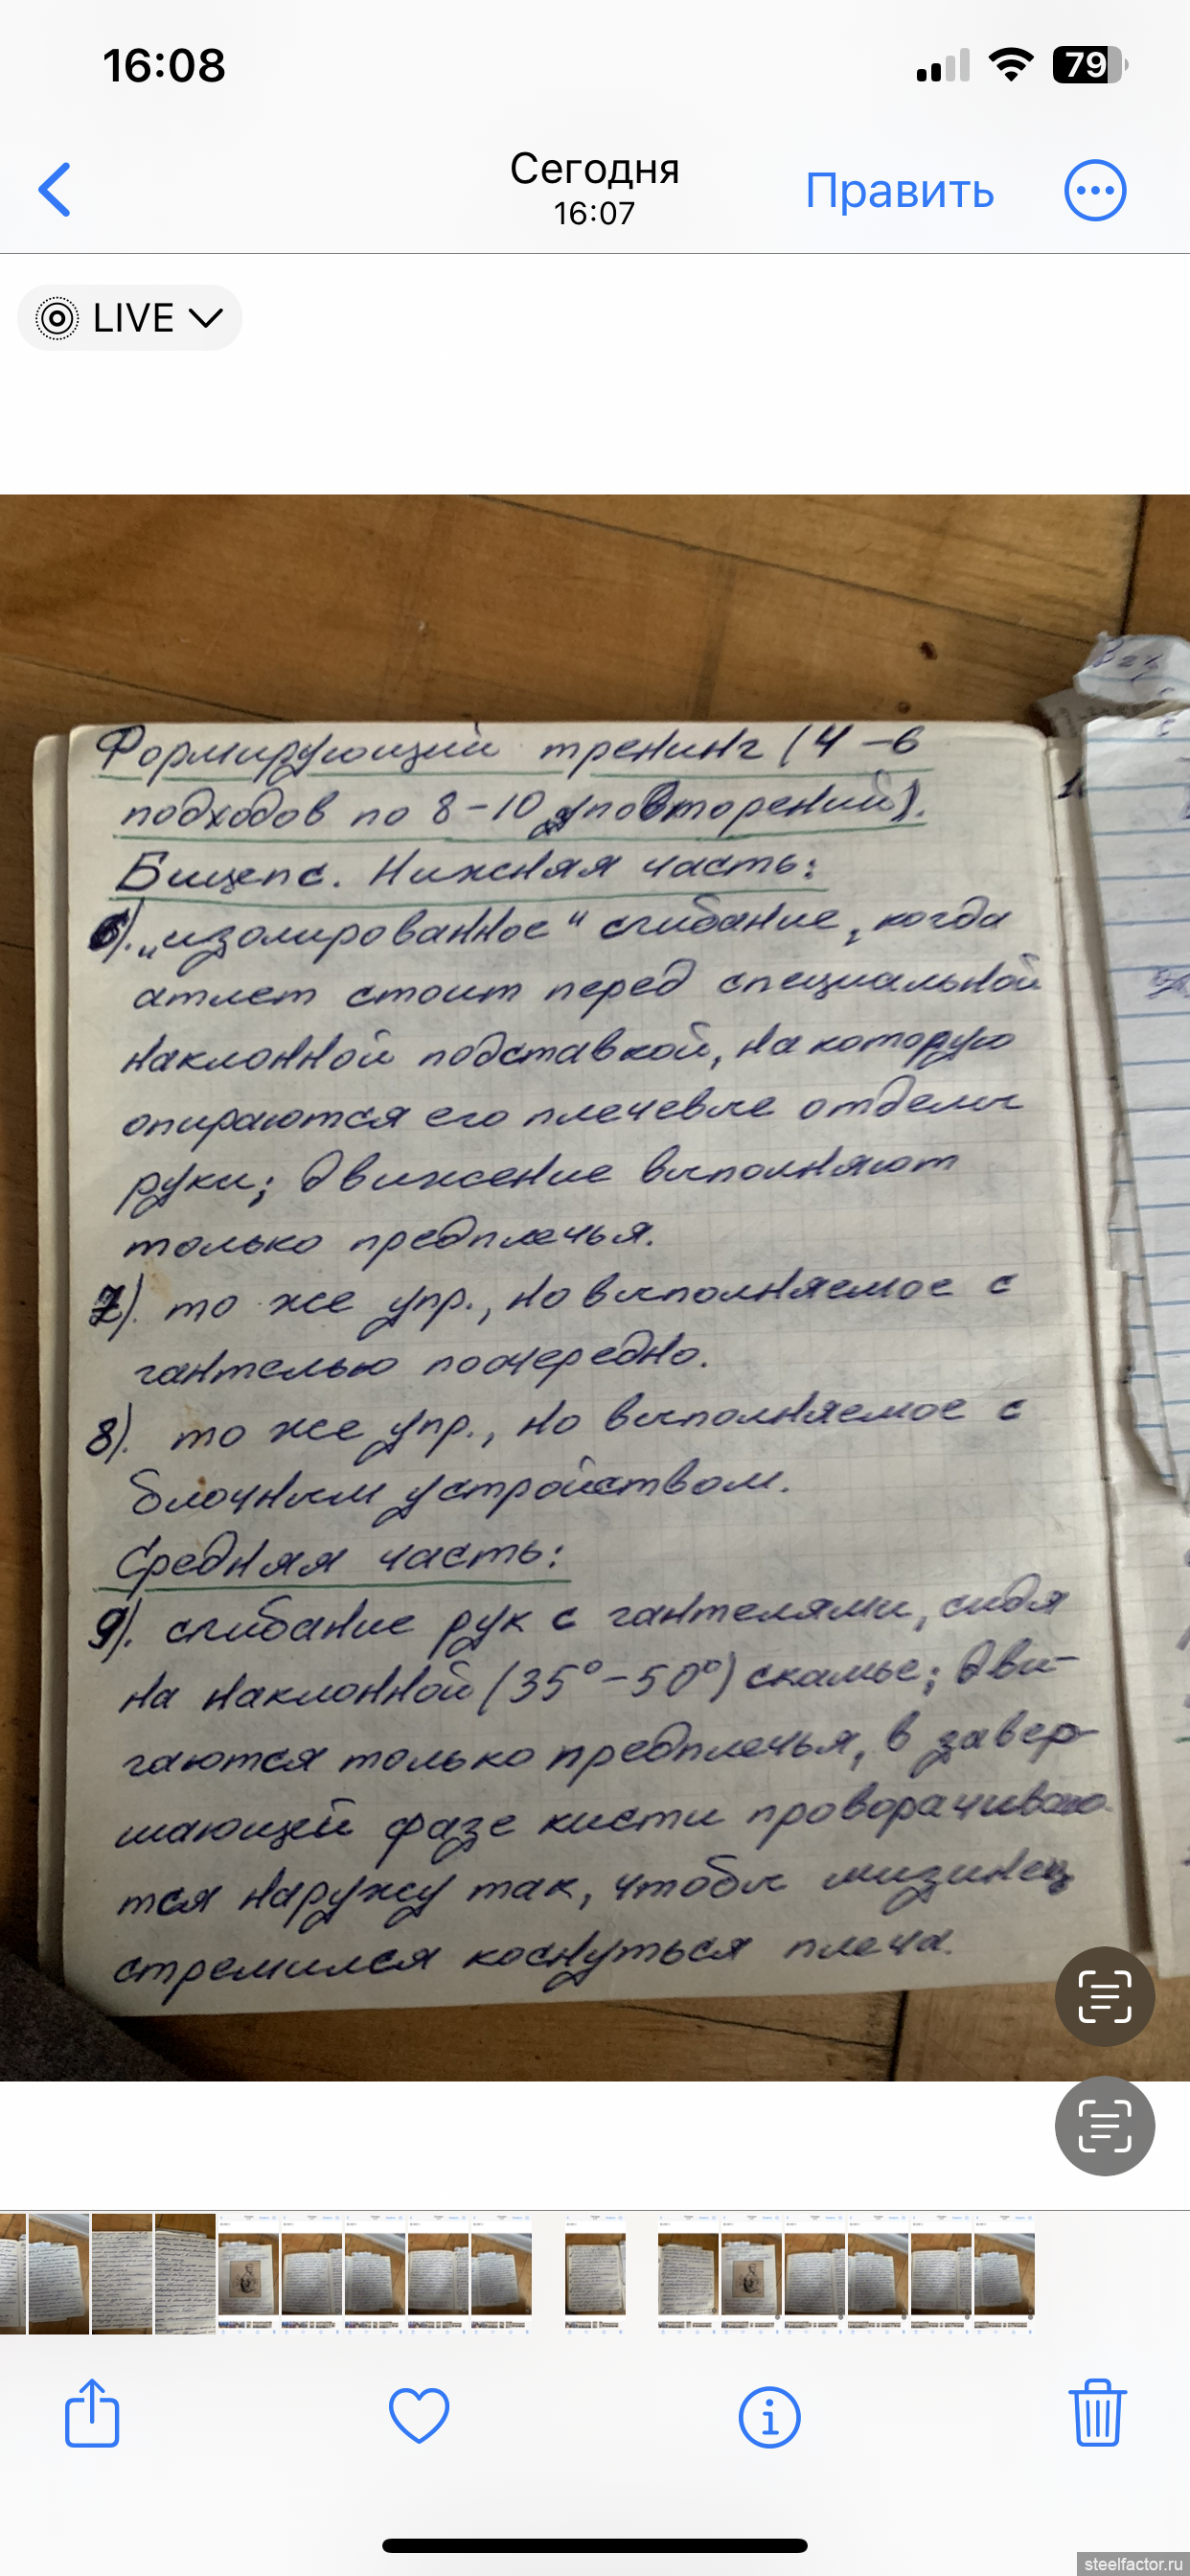 16:08
79
Сегодня
16:07
Править
LIVE
Формирующий тренинг (4-6
подходов по 8-10 повторений).
Бицепс. Нижняя часть:
6). „изолированное" сгибание, когда
атлет стоит перед специальной
наклонной подставкой, на которую
опираются его плечевые отделы
руки; движение выполняют
только предплечья.
7). то же упр., но выполняемое с
гантелью поочередно.
8). то же упр., но выполняемое с
блочным устройством.
Средняя часть:
9). сгибание рук с гантелями, сидя
на наклонной (35°-50°) скамье; дви-
гаются только предплечья, в завер-
шающей фазе кисти проворачиваю-
тся наружу так, чтобы мизинец
стремился коснуться плеча.
steelfactor.ru